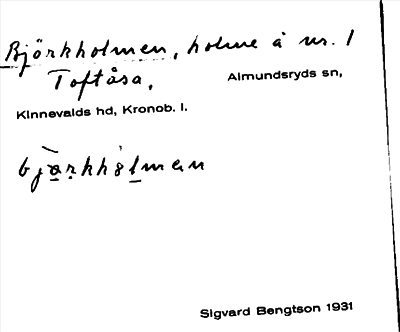 Björkholmen, holme å nr. 1
Toftåsa, Almundsryds sn,
Kinnevalds hd, Kronob. l.
bjo̱ṛkhȯl̠mɘn
Sigvard Bengtson 1931